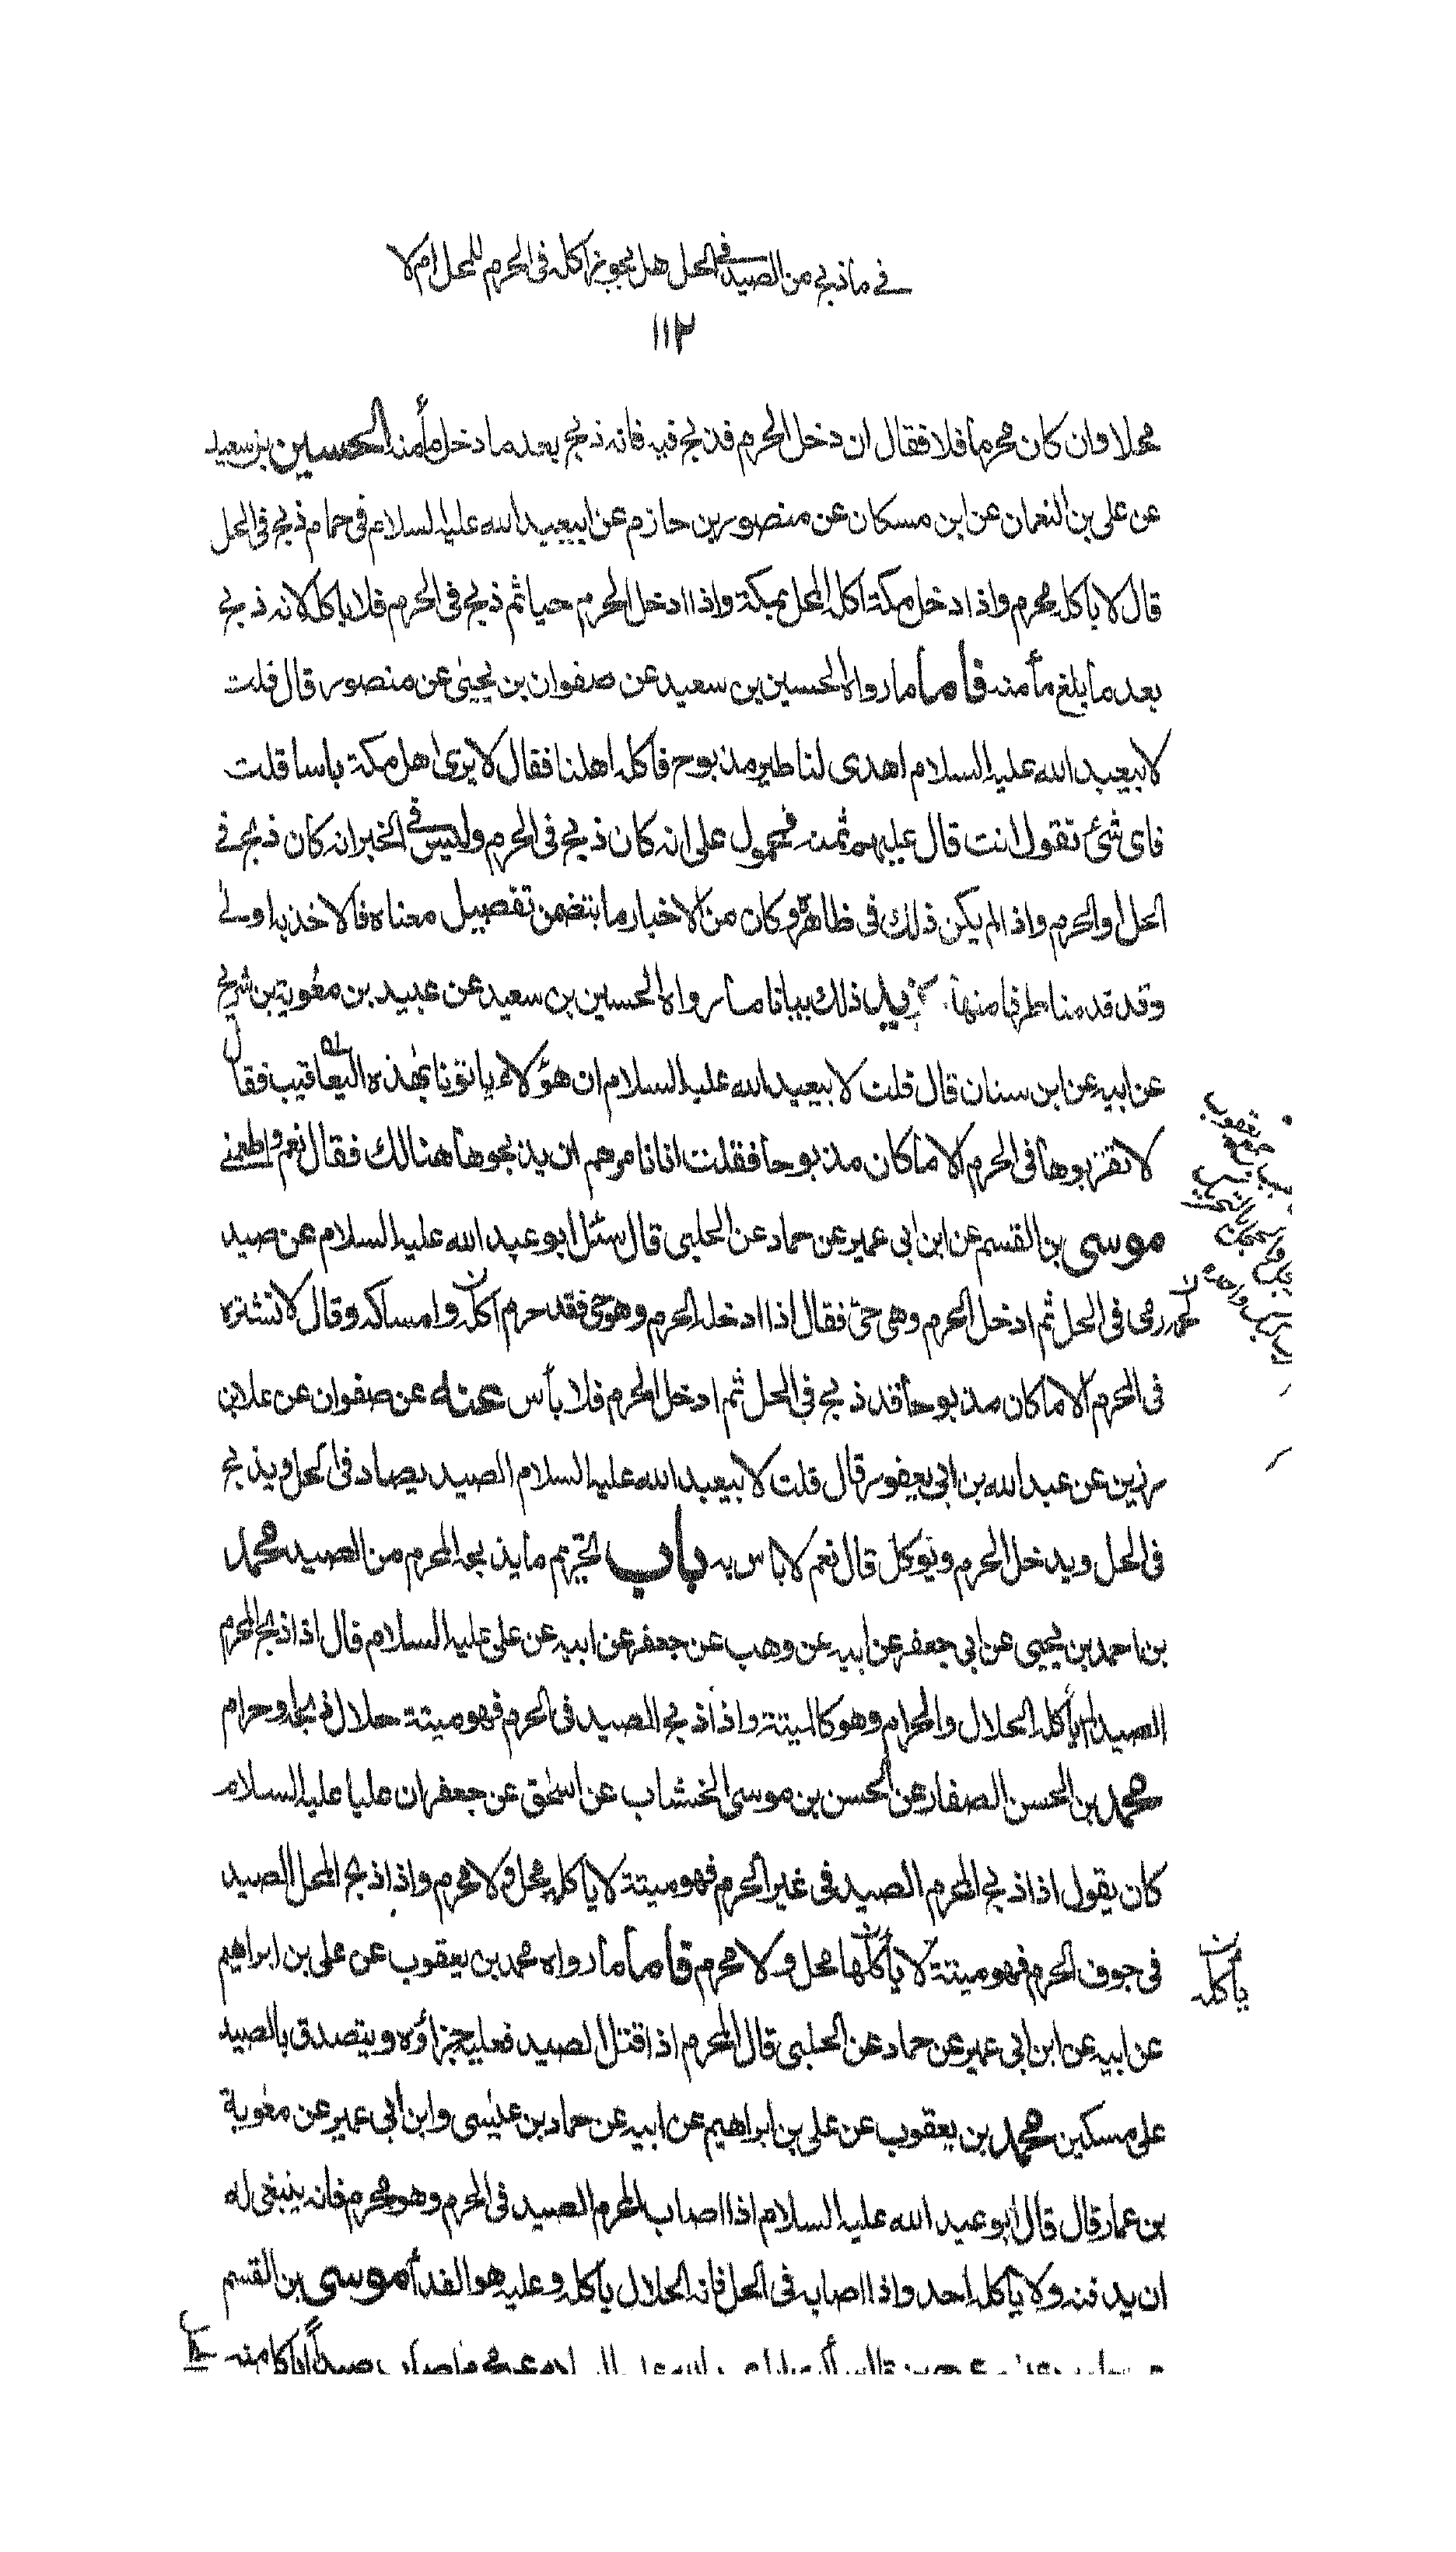 في ما ذبح من الصيد في الحل هل يجوز اكله فى الحرم للمحل ام لا
١١٢
محلا وان كان محرما فلا فقال ان دخل الحرم فذبح فيه فانه ذبح بعد ما دخل مأمنه الحسين بن سعيد
عن على بن النعمان عن ابن مسكان عن منصور بن حازم عن ابيعبد الله عليه السلام فى حمام ذبح فى الحل
قال لا يأكله محرم واذا ادخل مكة اكله المحل بمكة واذا ادخل الحرم حيا ثم ذبح فى الحرم فلا ياكله لانه ذبح
بعد ما بلغ مأمنه فأما ما رواه الحسين بن سعيد عن صفوان بن يحيى عن منصور قال قلت
لابيعبد الله عليه السلام اهدى لنا طير مذبوح فاكله اهلنا فقال لا يرى اهل مكة باسا قلت
فاى شئ تقول انت قال عليهم ثمنه فمحمول على انه كان ذبح فى الحرم وليس في الخبر انه كان ذبح في
الحل او الحرم واذا لم يكن ذلك فى ظاهره وكان من الاخبار ما يتضمن تفصيل معناه فالاخذ به اولى
وقد قدمنا طرفا منها ويزيد ذلك بيانا ما رواه الحسين بن سعيد عن عبيد بن معوية بن شريح
عن ابيه عن ابن سنان قال قلت لابيعبد الله عليه السلام ان هؤلاء ياتونا بهذه اليعاقيب فقال
لا تقربوها فى الحرم الا ما كان مذبوحا فقلت انا نامرهم ان يذبحوها هنالك فقال نعم واطعمني
موسى بن القسم عن ابن ابى عمير عن حماد عن الحلبى قال سئل ابو عبد الله عليه السلام عن صيد
رمى فى الحل ثم ادخل الحرم وهى حى فقال اذا ادخله الحرم وهو حى فقد حرم اكله وامساكه وقال لا تشتره
فى الحرم الا ما كان مذبوحا قد ذبح فى الحل ثم ادخل الحرم فلا بأس عنه عن صفوان عن علا بن
رزين عن عبد الله بن ابى يعفور قال قلت لابيعبد الله عليه السلام الصيد يصاد فى الحل ويذبح
فى الحل ويدخل الحرم ويؤكل قال نعم لا باس به باب تحريم ما يذبحه المحرم من الصيد محمد
بن احمد بن يحيى عن ابى جعفر عن ابيه عن وهب عن جعفر عن ابيه عن على عليه السلام قال اذا ذبح المحرم
الصيد لم يأكله الحلال والحرام وهو كالميتة واذا ذبح الصيد فى الحرم فهو ميتة حلال ذبحه او حرام
محمد بن الحسن الصفار عن الحسن بن موسى الخشاب عن اسحق عن جعفر ان عليا عليه السلام
كان يقول اذا ذبح المحرم الصيد فى غير الحرم فهو ميتة لا يأكله محل ولا محرم واذا ذبح المحل الصيد
فى جوف الحرم فهو ميتة لا يأكلها محل ولا محرم فأما ما رواه محمد بن يعقوب عن على بن ابراهيم
يأكله
عن ابيه عن ابن ابى عمير عن حماد عن الحلبى قال المحرم اذا قتل الصيد فعليه جزاؤه ويتصدق بالصيد
على مسكين محمد بن يعقوب عن على بن ابراهيم عن ابيه عن حماد بن عيسى وابن ابى عمير عن معوية
بن عمار قال قال ابو عبد الله عليه السلام اذا اصاب المحرم الصيد فى الحرم وهو محرم فانه ينبغى له
ان يدفنه ولا يأكله احد واذا اصابه فى الحل فانه الحلال يأكله وعليه هو الفداء موسى بن القسم